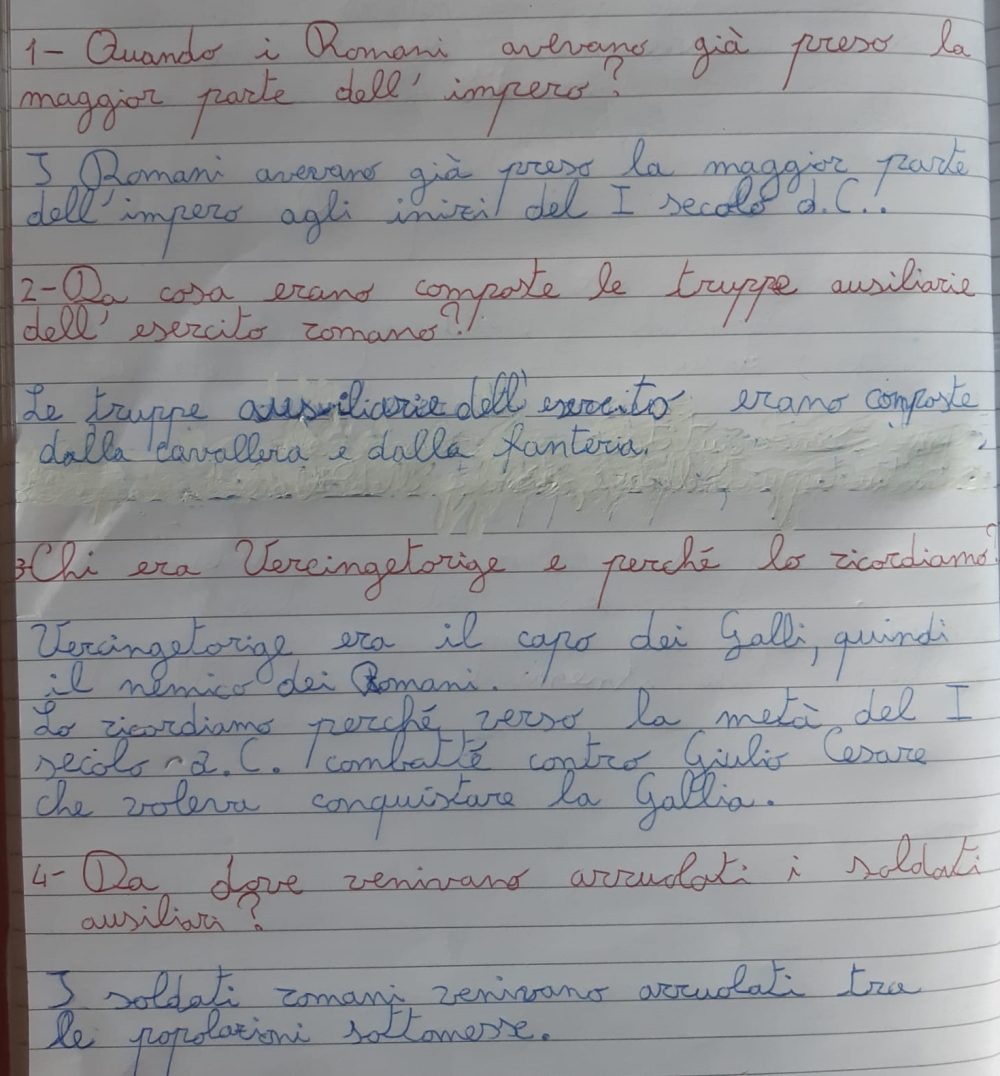 1- Quando i Romani avevano già preso la
maggior parte dell' impero?
I Romani avevano già preso la maggior parte
dell'impero agli inizi del I secolo d.C..
2- Da cosa erano composte le truppe ausiliarie
dell' esercito romano?
Le truppe ausiliarie dell' esercito erano composte
dalla cavalleria e dalla fanteria.
3-Chi era Vercingetorige e perché lo ricordiamo?
Vercingetorige era il capo dei Galli, quindi
il nemico dei Romani.
Lo ricordiamo perché verso la metà del I
secolo a.C. combatté contro Giulio Cesare
che voleva conquistare la Gallia.
4- Da dove venivano arruolati i soldati
ausiliari?
I soldati romani venivano arruolati tra
le popolazioni sottomesse.